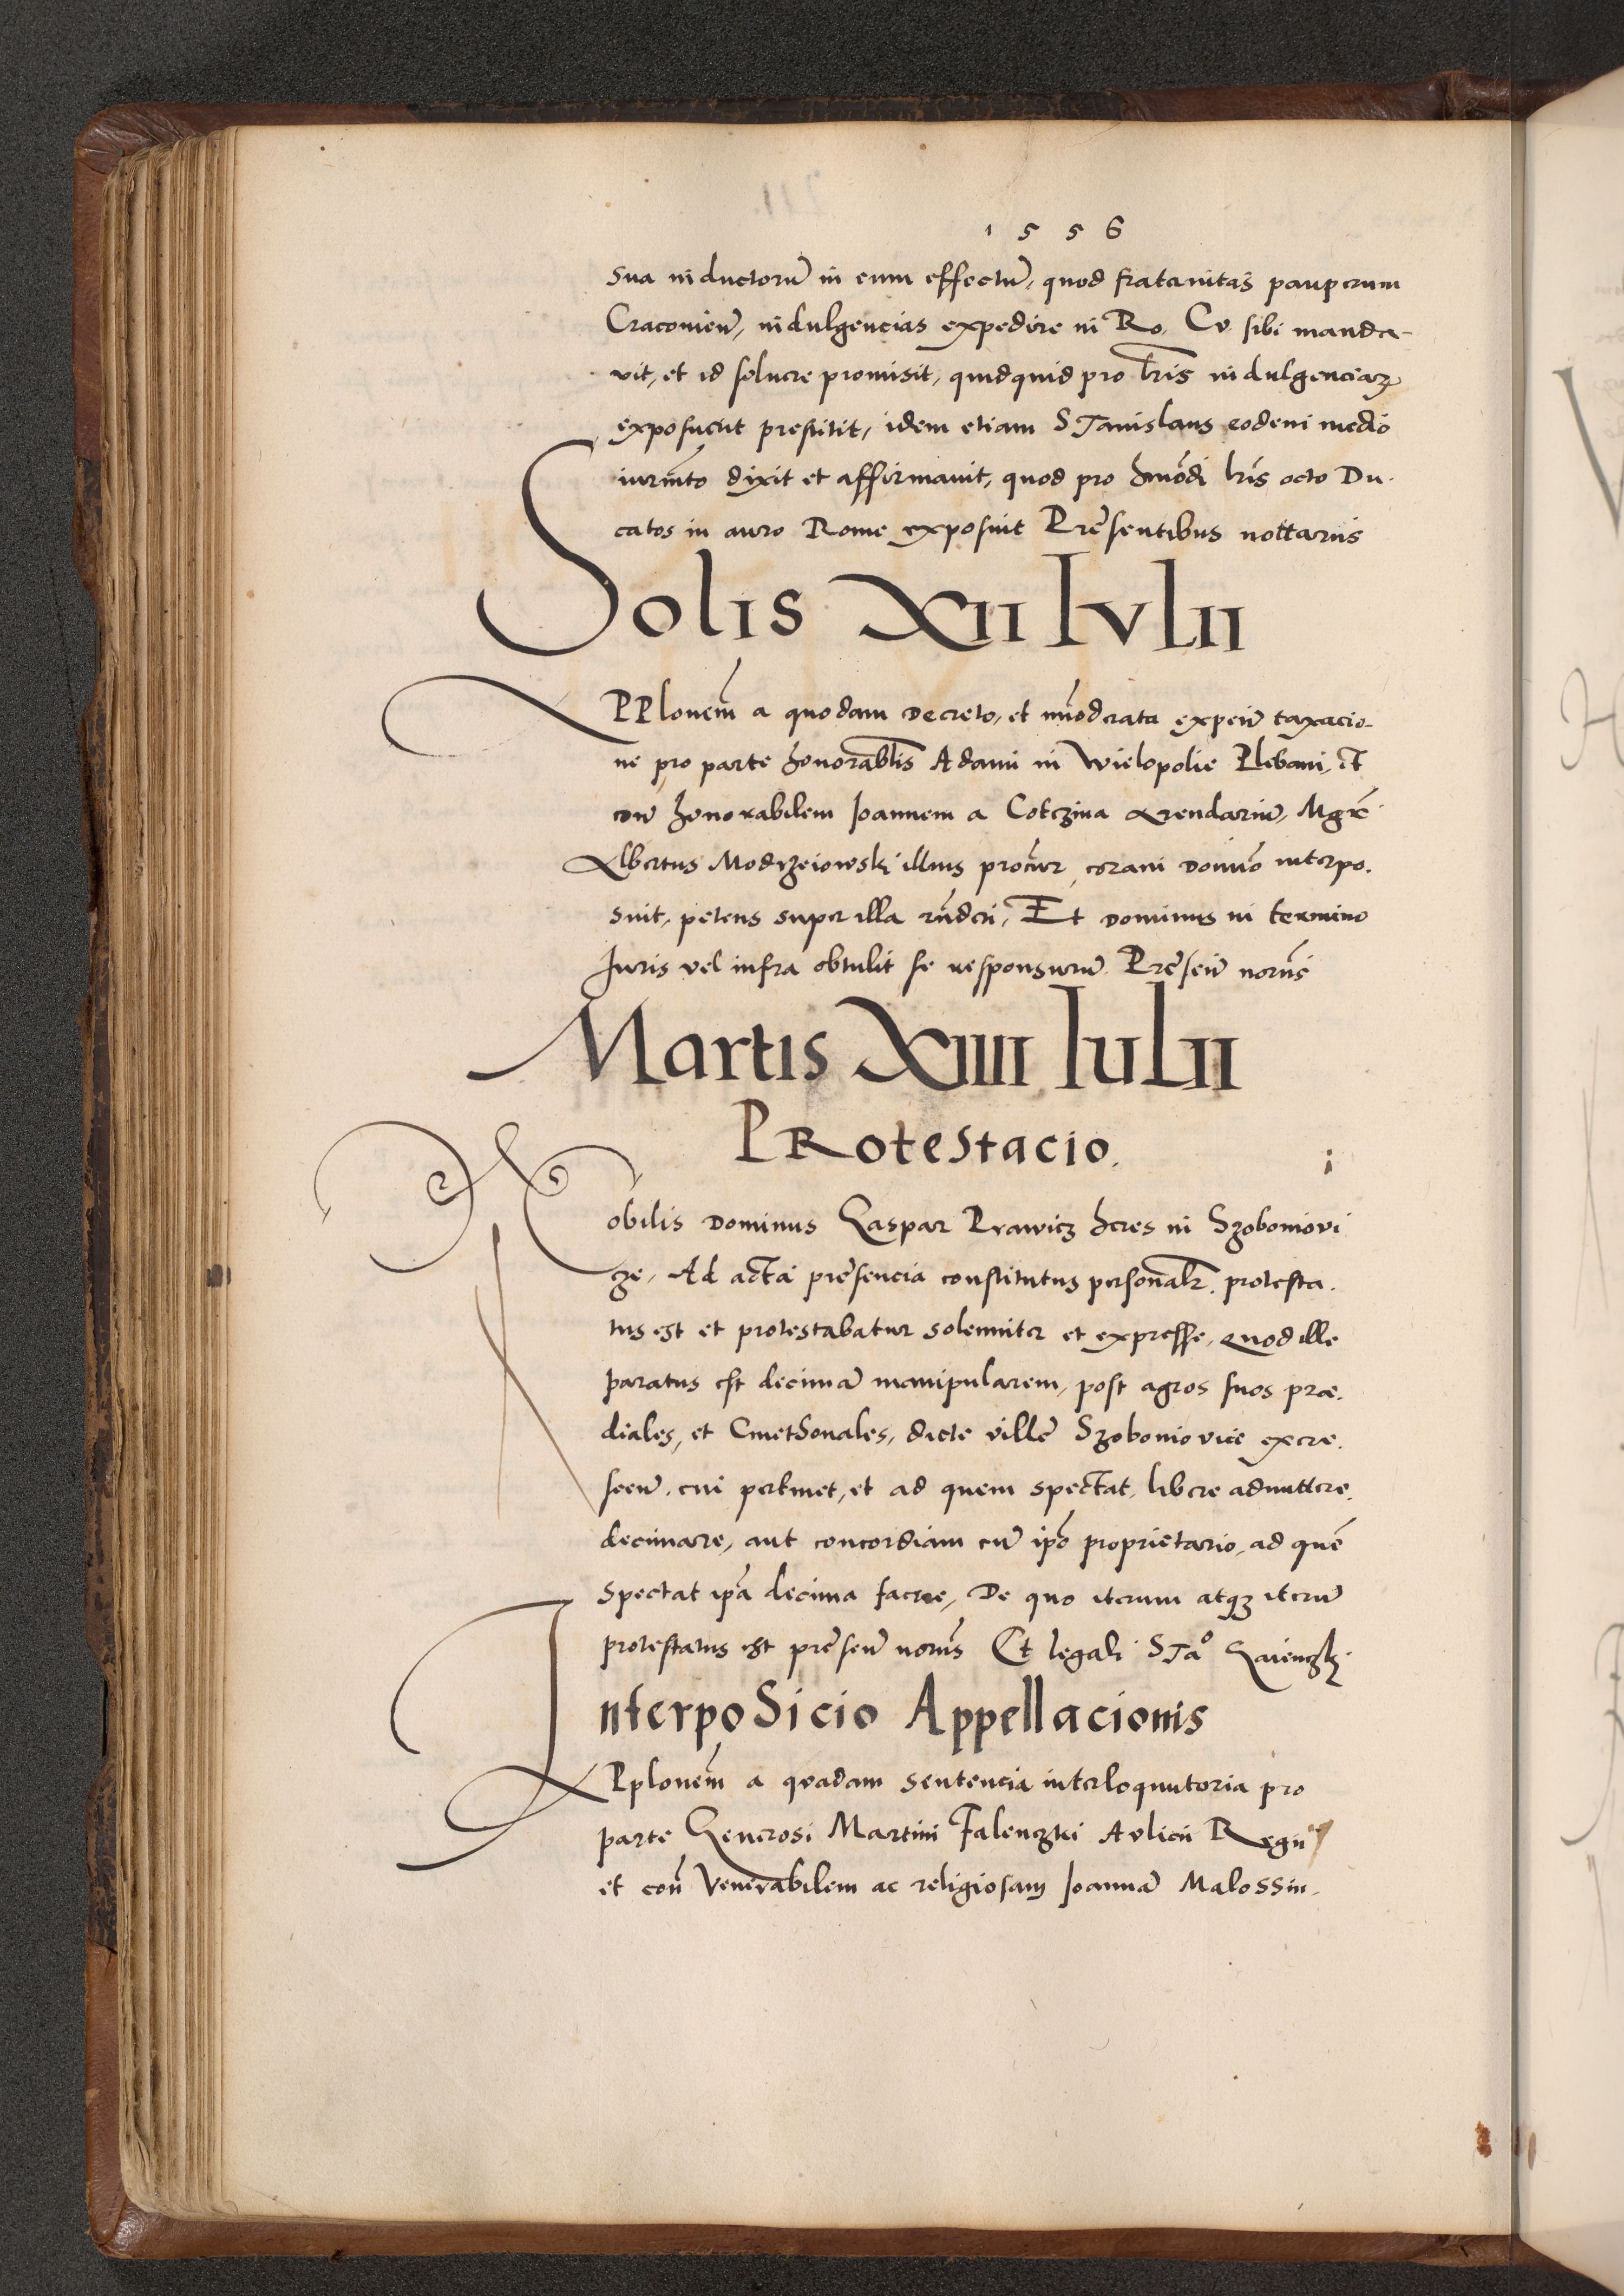 1556
sua inductorū in eum effectū, quod fraternitas pauperum
Cracovieñ, indulgencias expedire in Ro. Cu. sibi manda-
vit, et id soluere promisit, quidquid pro lr̄is indulgenciaꝝ
exposuerit prestitit, idem etiam STanislaus eodem medio
iurm̄to dixit et affirmauit, quod pro hm̄ōdi lr̄is octo Du-
catos in auro Rome exposuit Prēsentibus nottariis
Solis XII IVLII
APPlonem̄ a quodam Decreto, et im̄oderata expeñ taxacio-
ne pro parte honorabl̄is Adami in Wielopolie Plebani, et
con̄ honorabilem Ioannem a Cotczina Arendariū, Mgr̄
Albertus Modrzeiowski illius procur̄, coram Domīo interpo-
suit, petens super illa rn̄deri, Et Dominus in termino
Iuris vel infra obtulit se responsurū Prēseñ norīis
Martis XIIII IuLII
PRotestacio.
Nobilis Dominus Gaspar Prawicz heres in Szoboniovi
ze, Ad acta prēsencia constitutus personalr̄, protesta-
tus est et protestabatur solemniter et expresse, quod ille
paratus est decimā manipularem, post agros suos præ-
diales, et Cmethonales, dicte ville Szoboniovice excre-
sceñ, cui pertinet, et ad quem spectat, libere admittere,
decimare, aut concordiam cū ip̄o proprietario, ad quē
spectat ip̄a decima facere, De quo iterum atqꝫ iterū
protestatus est prēseñ norīis Et legali STaᵒ
InterpoSicio Appellacionis
APplonem̄ a quadam sentencia interloquutoria pro
parte Generosi Martini Falenczki Aulici Regii
et con̄ Venerabilem ac religiosam Ioannā Malossin-